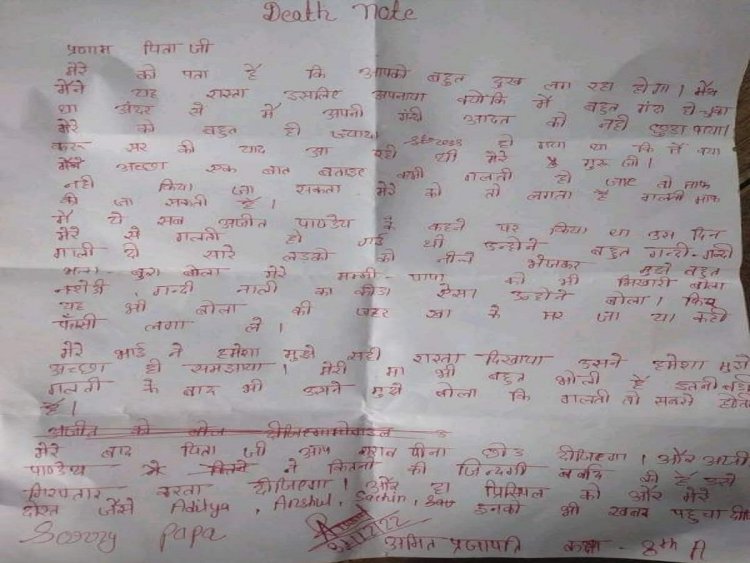 Death Note
प्रणाम पिता जी
मेरे को पता है कि आपको बहुत दुख लग रहा होगा। मैंने
मैंने यह रास्ता इसलिए अपनाया क्योंकि मैं बहुत गंदा हो चुका
था अंदर से मैं अपनी गंदी आदत को नही छुड़ा पाया।
मेरे को बहुत ही ज्यादा हो गया था कि मैं क्या
करू सर की याद आ रही थी मेरे गुरु जी।
मैंने अच्छा एक बात बताइए कभी गलती हो जाए तो माफ
नही किया जा सकता मेरे को तो लगता है गलती माफ
की जा सकती है।
मैं ये सब अजीत पाण्डेय के कहने पर किया था उस दिन
मेरे से गलती हो गई थी उन्होने बहुत गन्दी-गन्दी
गाली दी सारे लडको को नीचे भेजकर मुझे बहुत
भला-बुरा बोला मेरे मम्मी-पापा को भी भिखारी बोला
गन्दी नाली का कीडा ऐसा उन्होने बोला। फिर
यह भी बोला की जहर खा के मर जा या कही
फॉसी लगा ले।
मेरे भाई ने हमेशा मुझे सही रास्ता दिखाया उसने हमेशा मुझे
अच्छा ही समझाया। मेरी मा भी बहुत भोली है इतनी बडी
गलती के बाद भी उसने मुझे बोला कि गलती तो सबसे होती
है।
अजीत को बोल दीजिएगा
मेरे बाद पिता जी आप शराब पीना छोड दीजिएगा। और अजीत
पाण्डेय ने कितनो की जिन्दगी बर्बाद की है उसे
गिरफ्तार करवा दीजिएगा। और हा प्रिंसिपल को और मेरे
दोस्त जैसे Aditya, Anshul, Sachin, इनको भी खबर पहुचा
Sorry Papa
अमित प्रजापति कक्षा - 8th A